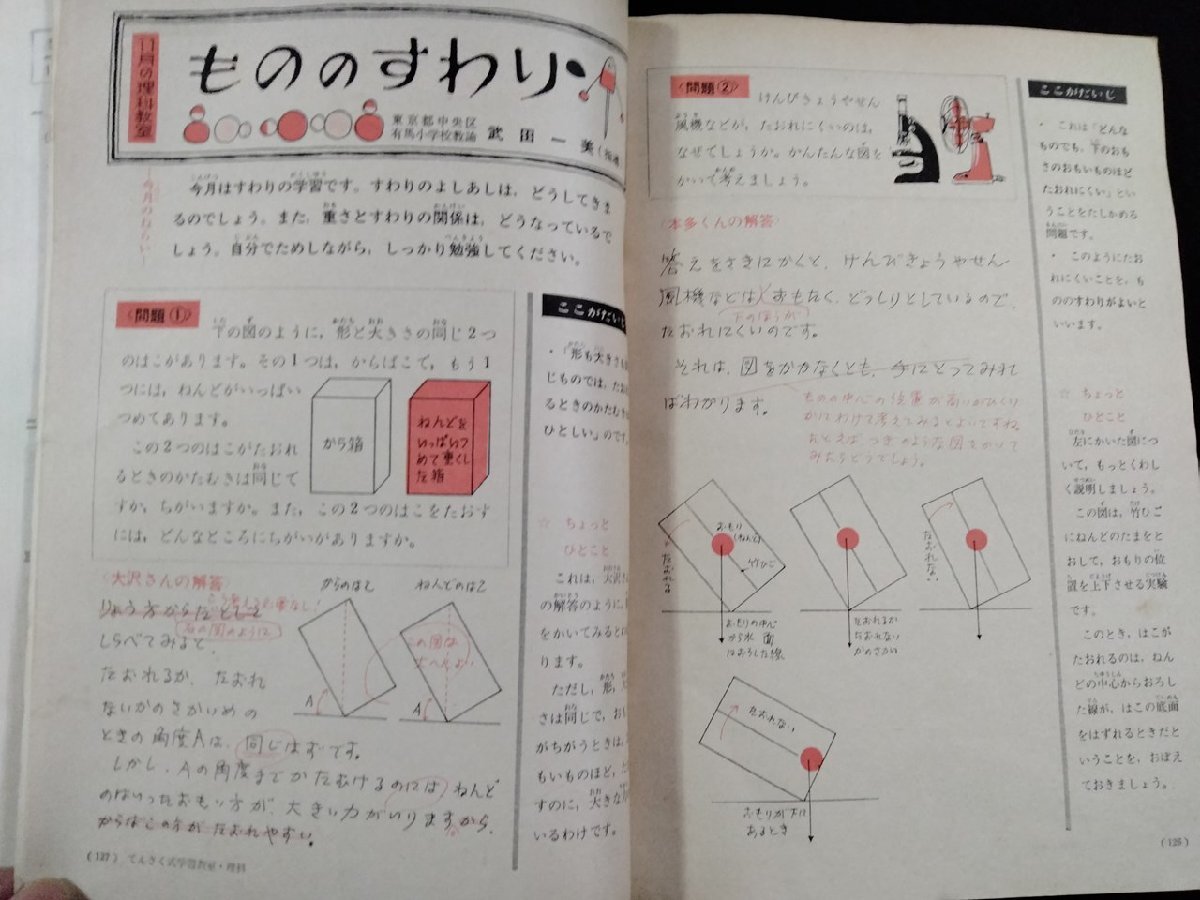 11月の理科教室
もののすわり
東京都中央区
有馬小学校教諭 武田一美
今月のねらい
今月はすわりの学習です。すわりのよしあしは、どうしてきま
るのでしょう。また、重さとすわりの関係は、どうなっているで
しょう。自分でためしながら、しっかり勉強してください。
〈問題①〉
下の図のように、形と大きさの同じ2つ
のはこがあります。その1つは、からばこで、もう1
つには、ねんどがいっぱい
つめてあります。
この2つのはこがたおれ
るときのかたむきは同じで
すか、ちがいますか。また、この2つのはこをたおす
には、どんなところにちがいがありますか。
から箱
ねんどを
いっぱいつ
めて重くし
た箱
ここがだいじ
・「形も大きさも
じものでは、たお
るときのかたむき
ひとしい」のです
☆ ちょっと
ひとこと
これは、大沢
の解答のように、
をかいてみると
ります。
ただし、形、
さは同じで、お
がちがうときは、
もいものほど、
すのに、大きな
いるわけです。
〈大沢さんの解答〉
りょう方からだとして
右の図のように
しらべてみると、
たおれるか、たおれ
ないかのさかいめの
ときの角度Aは、同じはずです。
しかし、Aの角度までかたむけるのには、ねんど
のはいったおもい方が、大きい力がいりますから、
からばこの方がたおれやすい。
からのはこ
ねんどのはこ
この図は
たいへんよい
A
A
(127) てんさく式学習教室・理科
〈問題②〉
けんびきょうやせん
風機などが、たおれにくいのは、
なぜでしょうか。かんたんな図を
かいて考えましょう。
〈本多くんの解答〉
答えをさきにかくと、けんびきょうやせん
風機などは、おもたく、どっしりとしているので
下のほうが
たおれにくいのです。
それは、図をかかなくとも、手にとってみれ
ばわかります。
ものの中心の位置が高いかひくい
かにわけて考えてみるとよいですね。
たとえば つぎのような図をかいて
みたらどうでしょう。
たおれる
おもり
(ねんど)
竹ひご
おもりの中心
から水 面
におろした線
たおれるか
たおれない
かのさかい
たおれない
たおれない
おもりが下に
あるとき
ここがだいじ
・これは「どんな
ものでも、下のおも
さのおもいものほど
たおれにくい」とい
うことをたしかめる
問題です。
・このようにたお
れにくいことを、も
ののすわりがよいと
いいます。
☆ ちょっと
ひとこと
左にかいた図につ
いて、もっとくわし
く説明しましょう。
この図は、竹ひご
にねんどのたまをと
おして、おもりの位
置を上下させる実験
です。
このとき、はこが
たおれるのは、ねん
どの中心からおろし
た線が、はこの底面
をはずれるときだと
いうことを、おぼえ
ておきましょう。
(126)